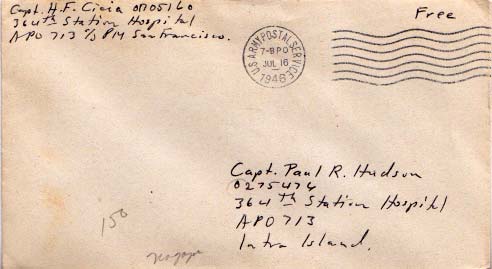 Capt. H.F. Cicia 0705160
364th Station Hospital
APO 713 c/o PM San Francisco.
Free
U.S. ARMY POSTAL SERVICE
7-8 PO
JUL 16
1946
Capt. Paul R. Hudson
0275474
364th Station Hospital
APO 713
Intra Island.
150